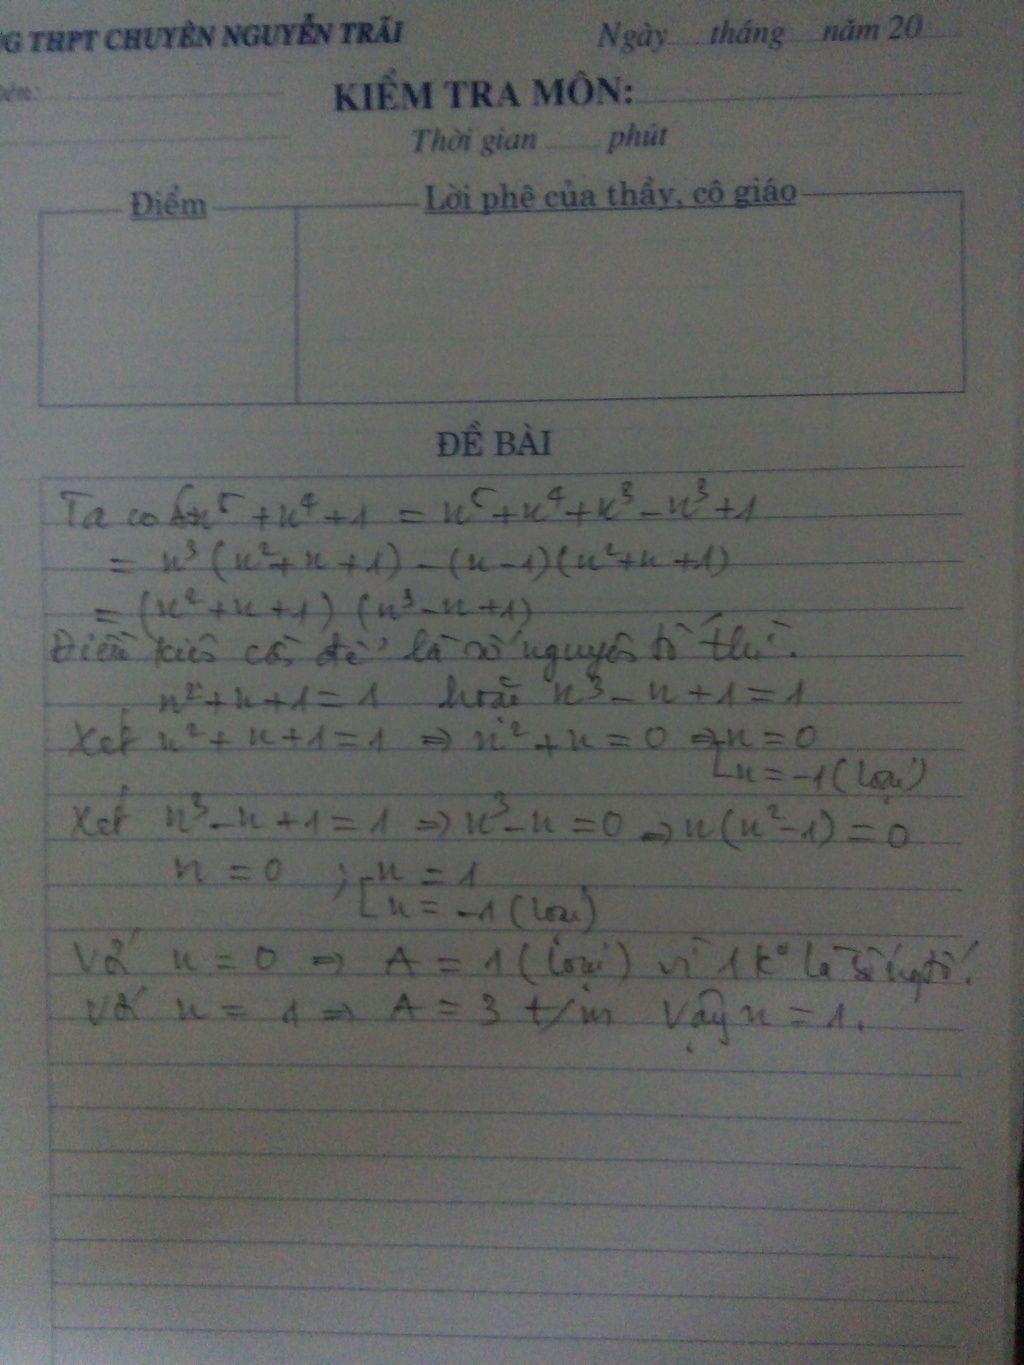 NG THPT CHUYÊN NGUYỄN TRÃI
Ngày tháng năm 20
KIỂM TRA MÔN:
Thời gian phút
Điểm
Lời phê của thầy, cô giáo
ĐỀ BÀI
Ta có n⁵ + n⁴ + 1 = n⁵ + n⁴ + n³ - n³ + 1
= n³ (n² + n + 1) - (n - 1)(n² + n + 1)
= (n² + n + 1) (n³ - n + 1)
Điều kiện cần để là số nguyên tố thì:
n² + n + 1 = 1 hoặc n³ - n + 1 = 1
Xét n² + n + 1 = 1 ⇒ n² + n = 0 ⇒ [n = 0
n = -1 (loại)
Xét n³ - n + 1 = 1 ⇒ n³ - n = 0 ⇒ n (n² - 1) = 0
n = 0 ; [n = 1
n = -1 (loại)
Với n = 0 ⇒ A = 1 (loại) vì 1 k° là số ng tố.
Với n = 1 ⇒ A = 3 t/m Vậy n = 1.